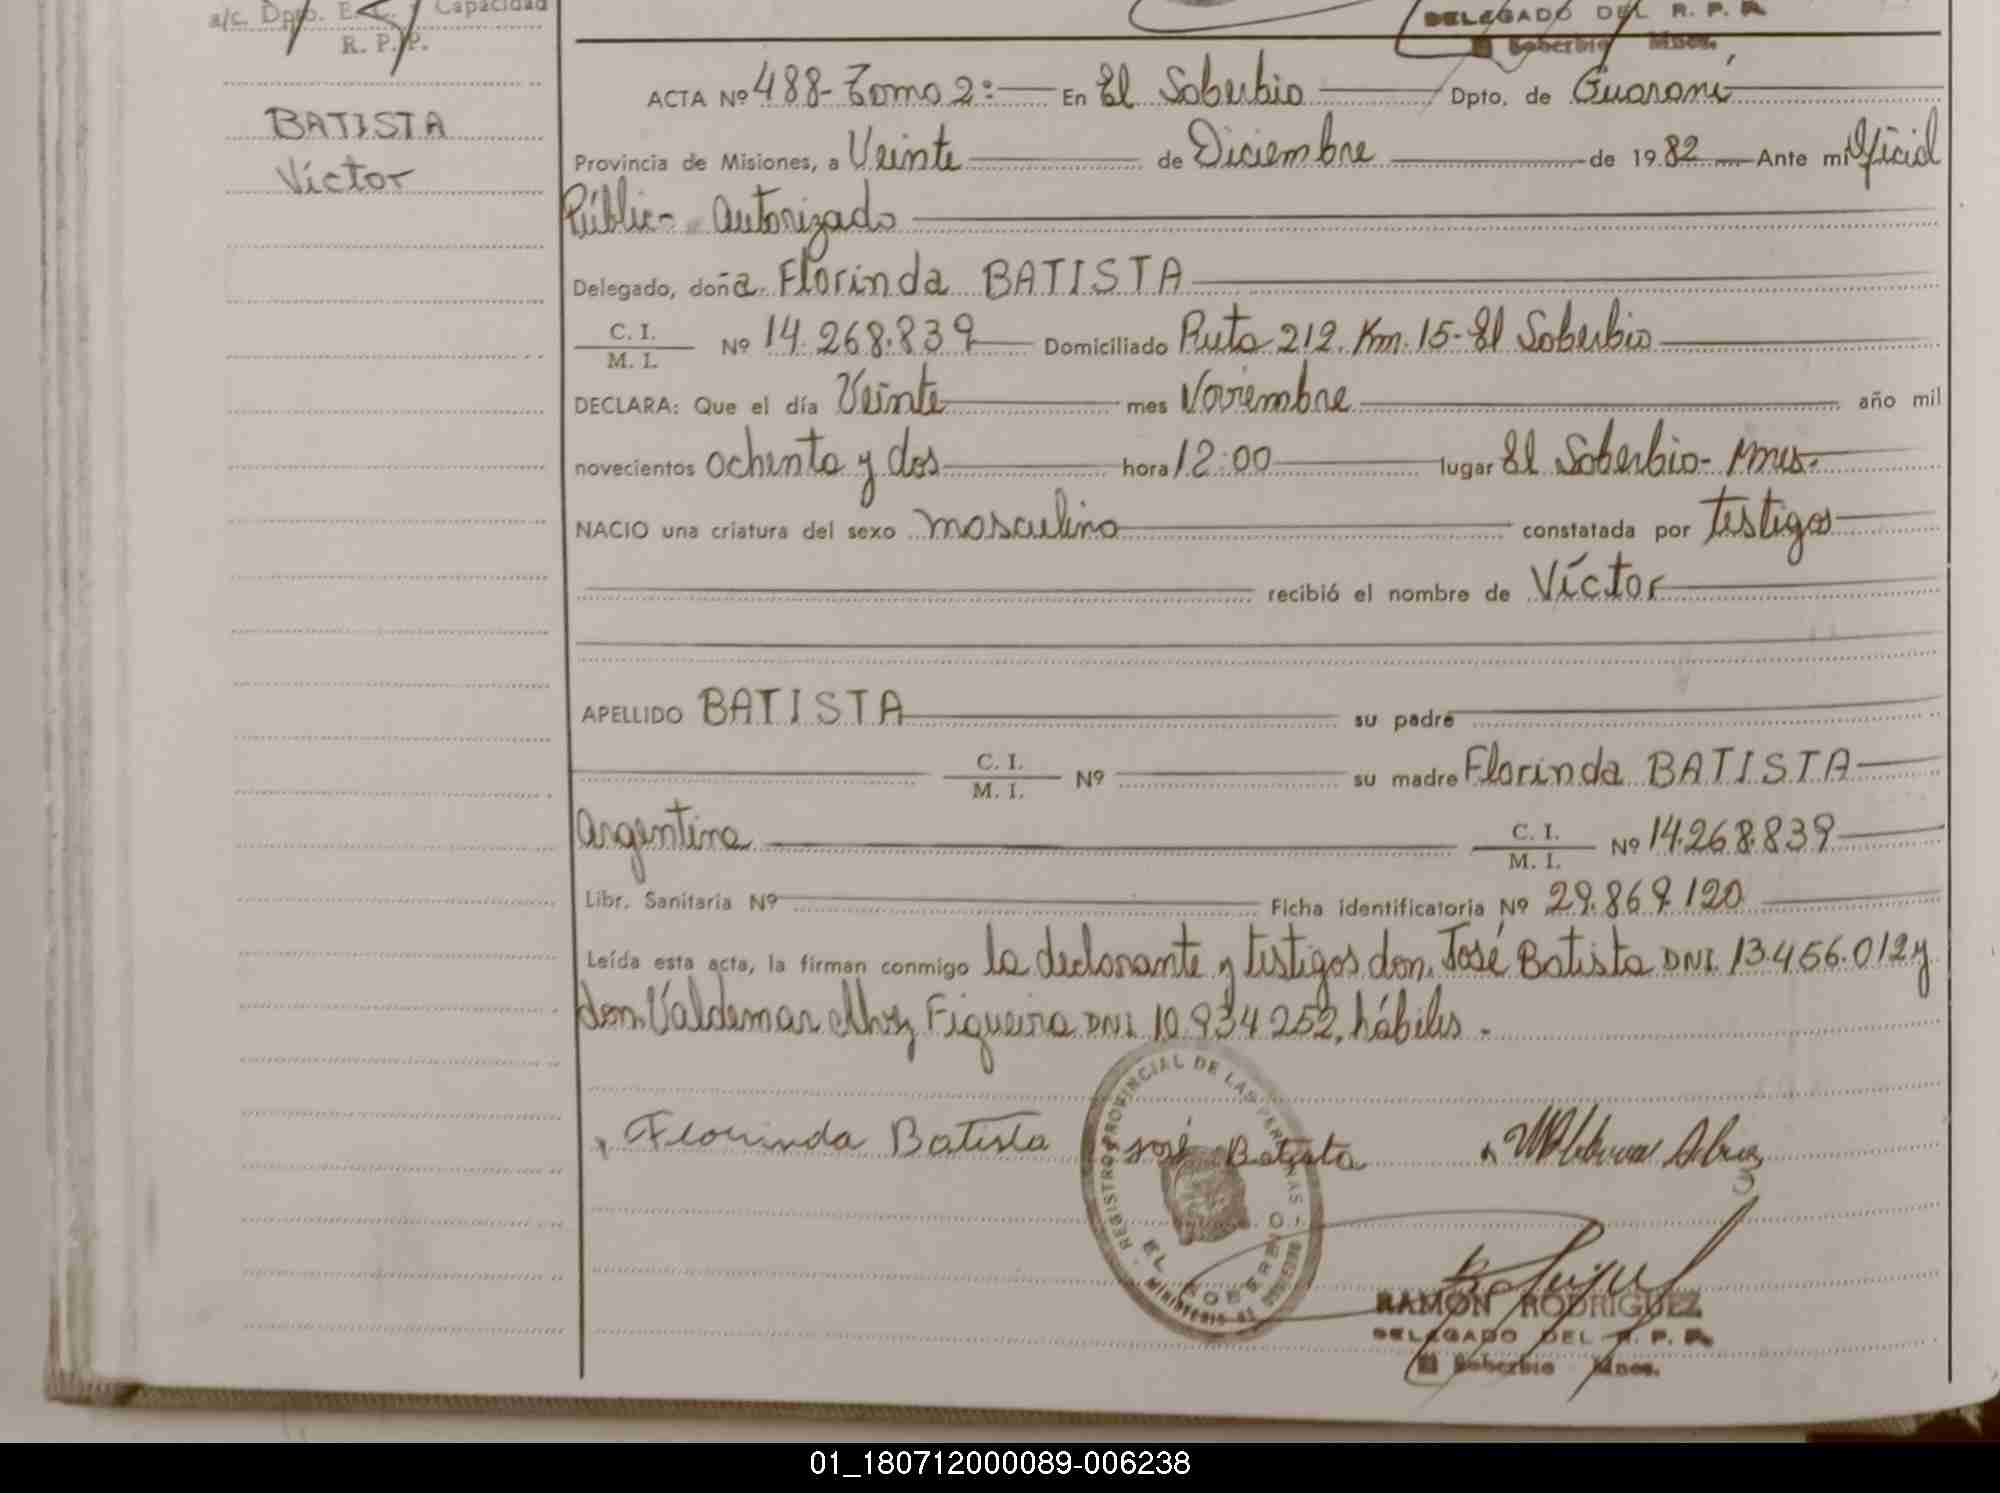 a/c. Dpto. E. C. y Capacidad
R. P. P.
DELEGADO DEL R. P. P.
El Soberbio Mnes.
BATISTA
Víctor
ACTA Nº 488- Tomo 2: En El Soberbio Dpto. de Guaraní
Provincia de Misiones, a Veinte de Diciembre de 1982 Ante mi Oficial
Públic- autorizado
Delegado, doña Florinda BATISTA
C. I.
M. I. Nº 14.268.839 Domiciliado Ruta 212. Km. 15- El Soberbio
DECLARA: Que el día Veinte mes Noviembre año mil
novecientos ochenta y dos hora 12:00 lugar El Soberbio- Mnes.
NACIO una criatura del sexo masculino constatada por testigos
recibió el nombre de Víctor
APELLIDO BATISTA su padre
C. I.
M. I. Nº su madre Florinda BATISTA
argentina C. I.
M. I. Nº 14.268.839
Libr. Sanitaria Nº Ficha identificatoria Nº 29.869.120
Leída esta acta, la firman conmigo la declarante y testigos don. José Batista DNI. 13.456.012 y
don. Valdemar Figueira DNI. 10.934.252, hábiles.
Florinda Batista José Batista
REGISTRO PROVINCIAL DE LAS PERSONAS
EL SOBERBIO
RAMÓN RODRIGUEZ
DELEGADO DEL R. P. P.
El Soberbio Mnes.
01_180712000089-006238